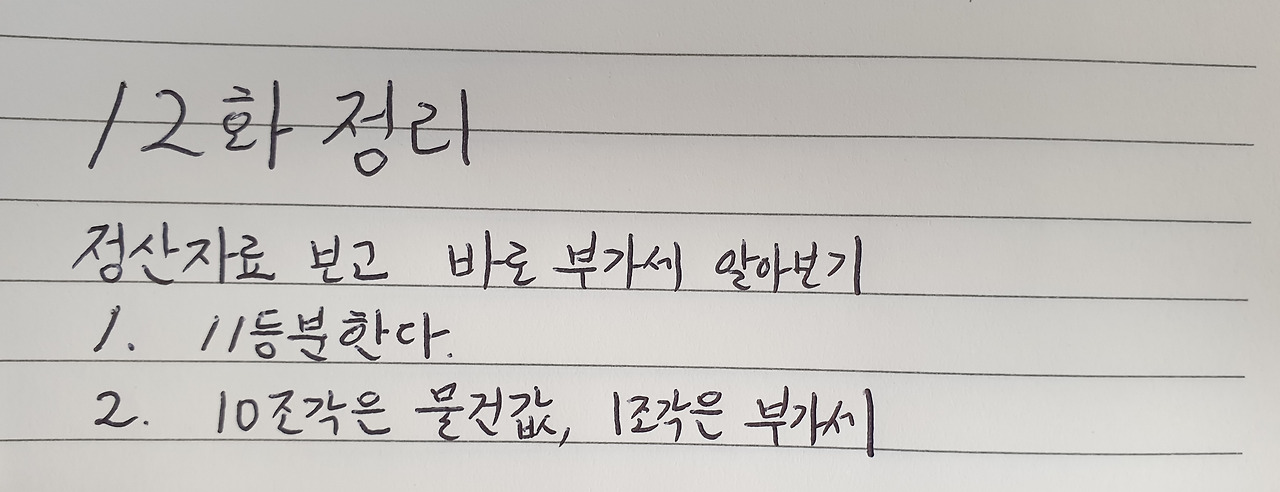 12화 정리
정산자료 보고 바로 부가세 알아보기
1. 11등분한다.
2. 10조각은 물건값, 1조각은 부가세